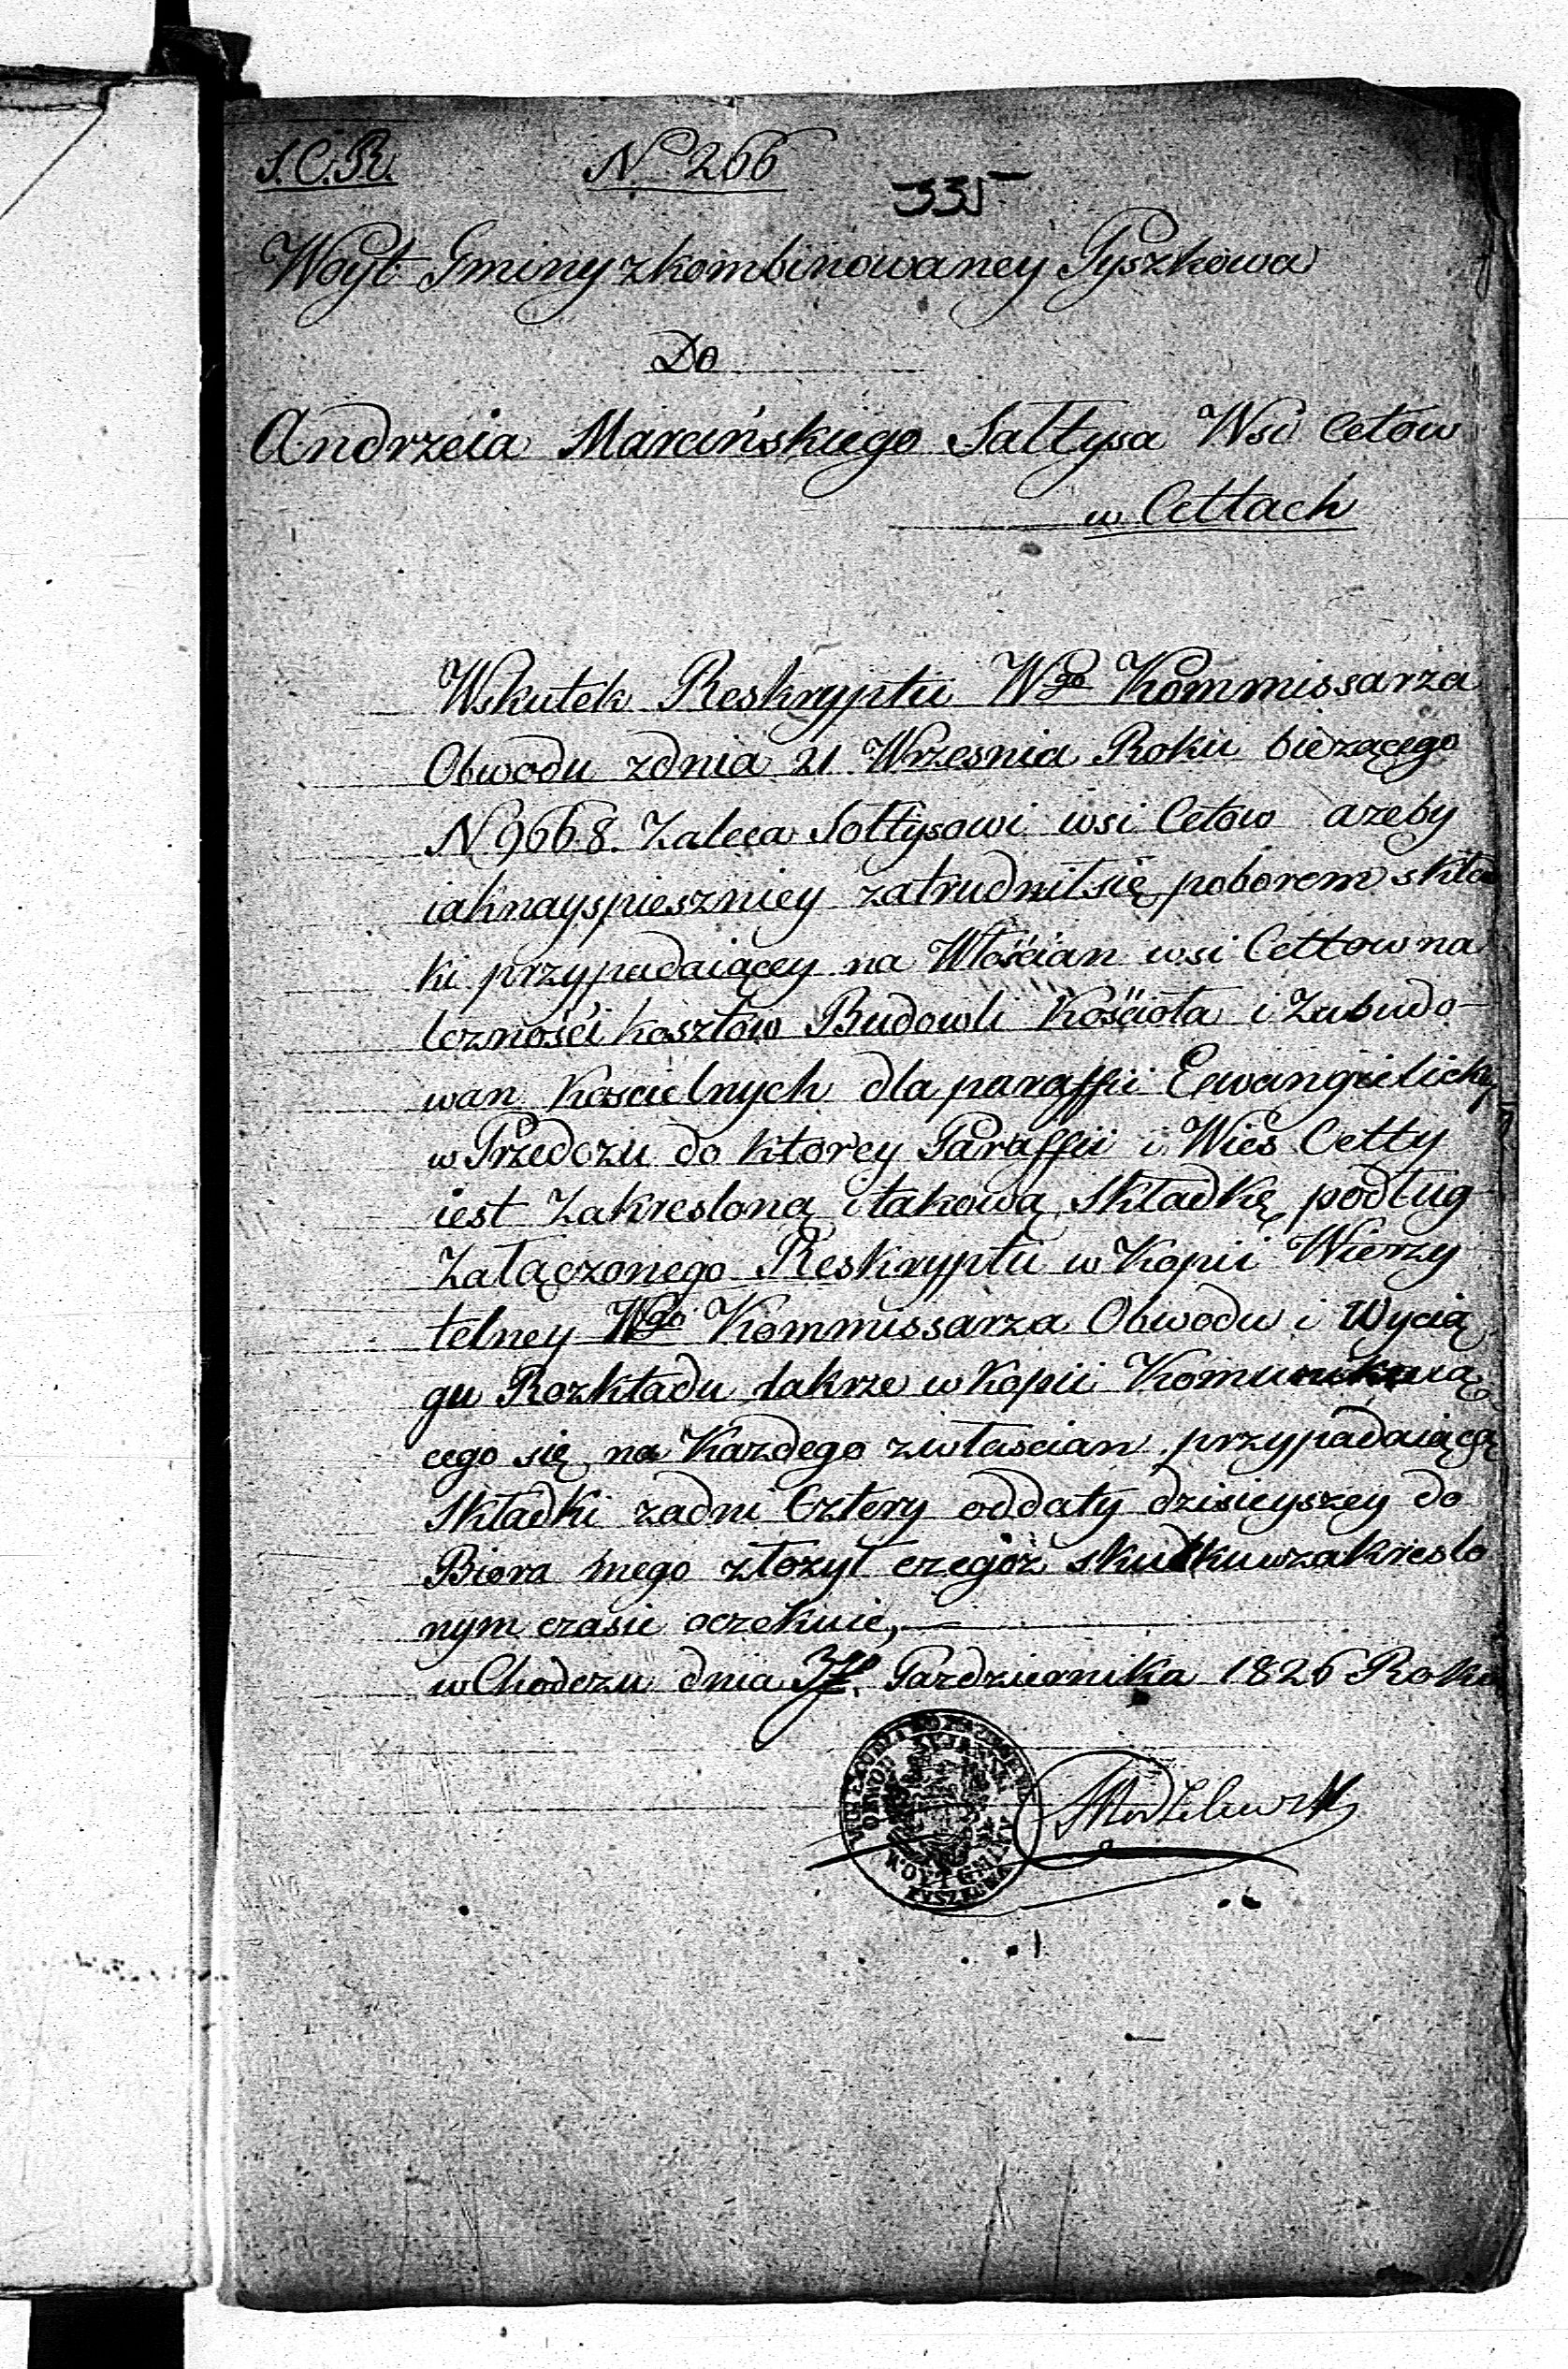 S.C.R. No 266
335
Woyt Gminy zkombinowaney Pyszkowa
Do
Andrzeia Marcińskiego Sałtysa Wsi Cetow
w Cettach
Wskutek Reskryptu Wgo Kommissarza
Obwodu zdnia 21 Wrzesnia Roku bieżącego
N 9668. Zaleca Sołtysowi wsi Cetow azeby
iaknayspieszniey zatrudnił się poborem skład
ki przypadaiącey na Włościan wsi Cettow na
leżności kosztow Budowli Kościoła i Zabudo-
wan Koscielnych dla paraffii Ewangielickiey
w Przedczu do ktorey Paraffii i Wies Cetty
iest Zakresloną i takową Składkę podług
Załączonego Reskryptu w Kopii Wierzy
telney Wgo Kommissarza Obwodu i Wycią
gu Rozkładu takrze w Kopii Komunikuią
cego się na Kazdego zwłascian przypadaiącą
Składki zadni Cztery od daty dzisieyszey do
Biora mego złozył czegoż skutku wzakreslo
nym czasie oczekuie,
w Chodczu dnia Pazdziernika 1826 Roku
WOYT GMINY
PYSZKOWA